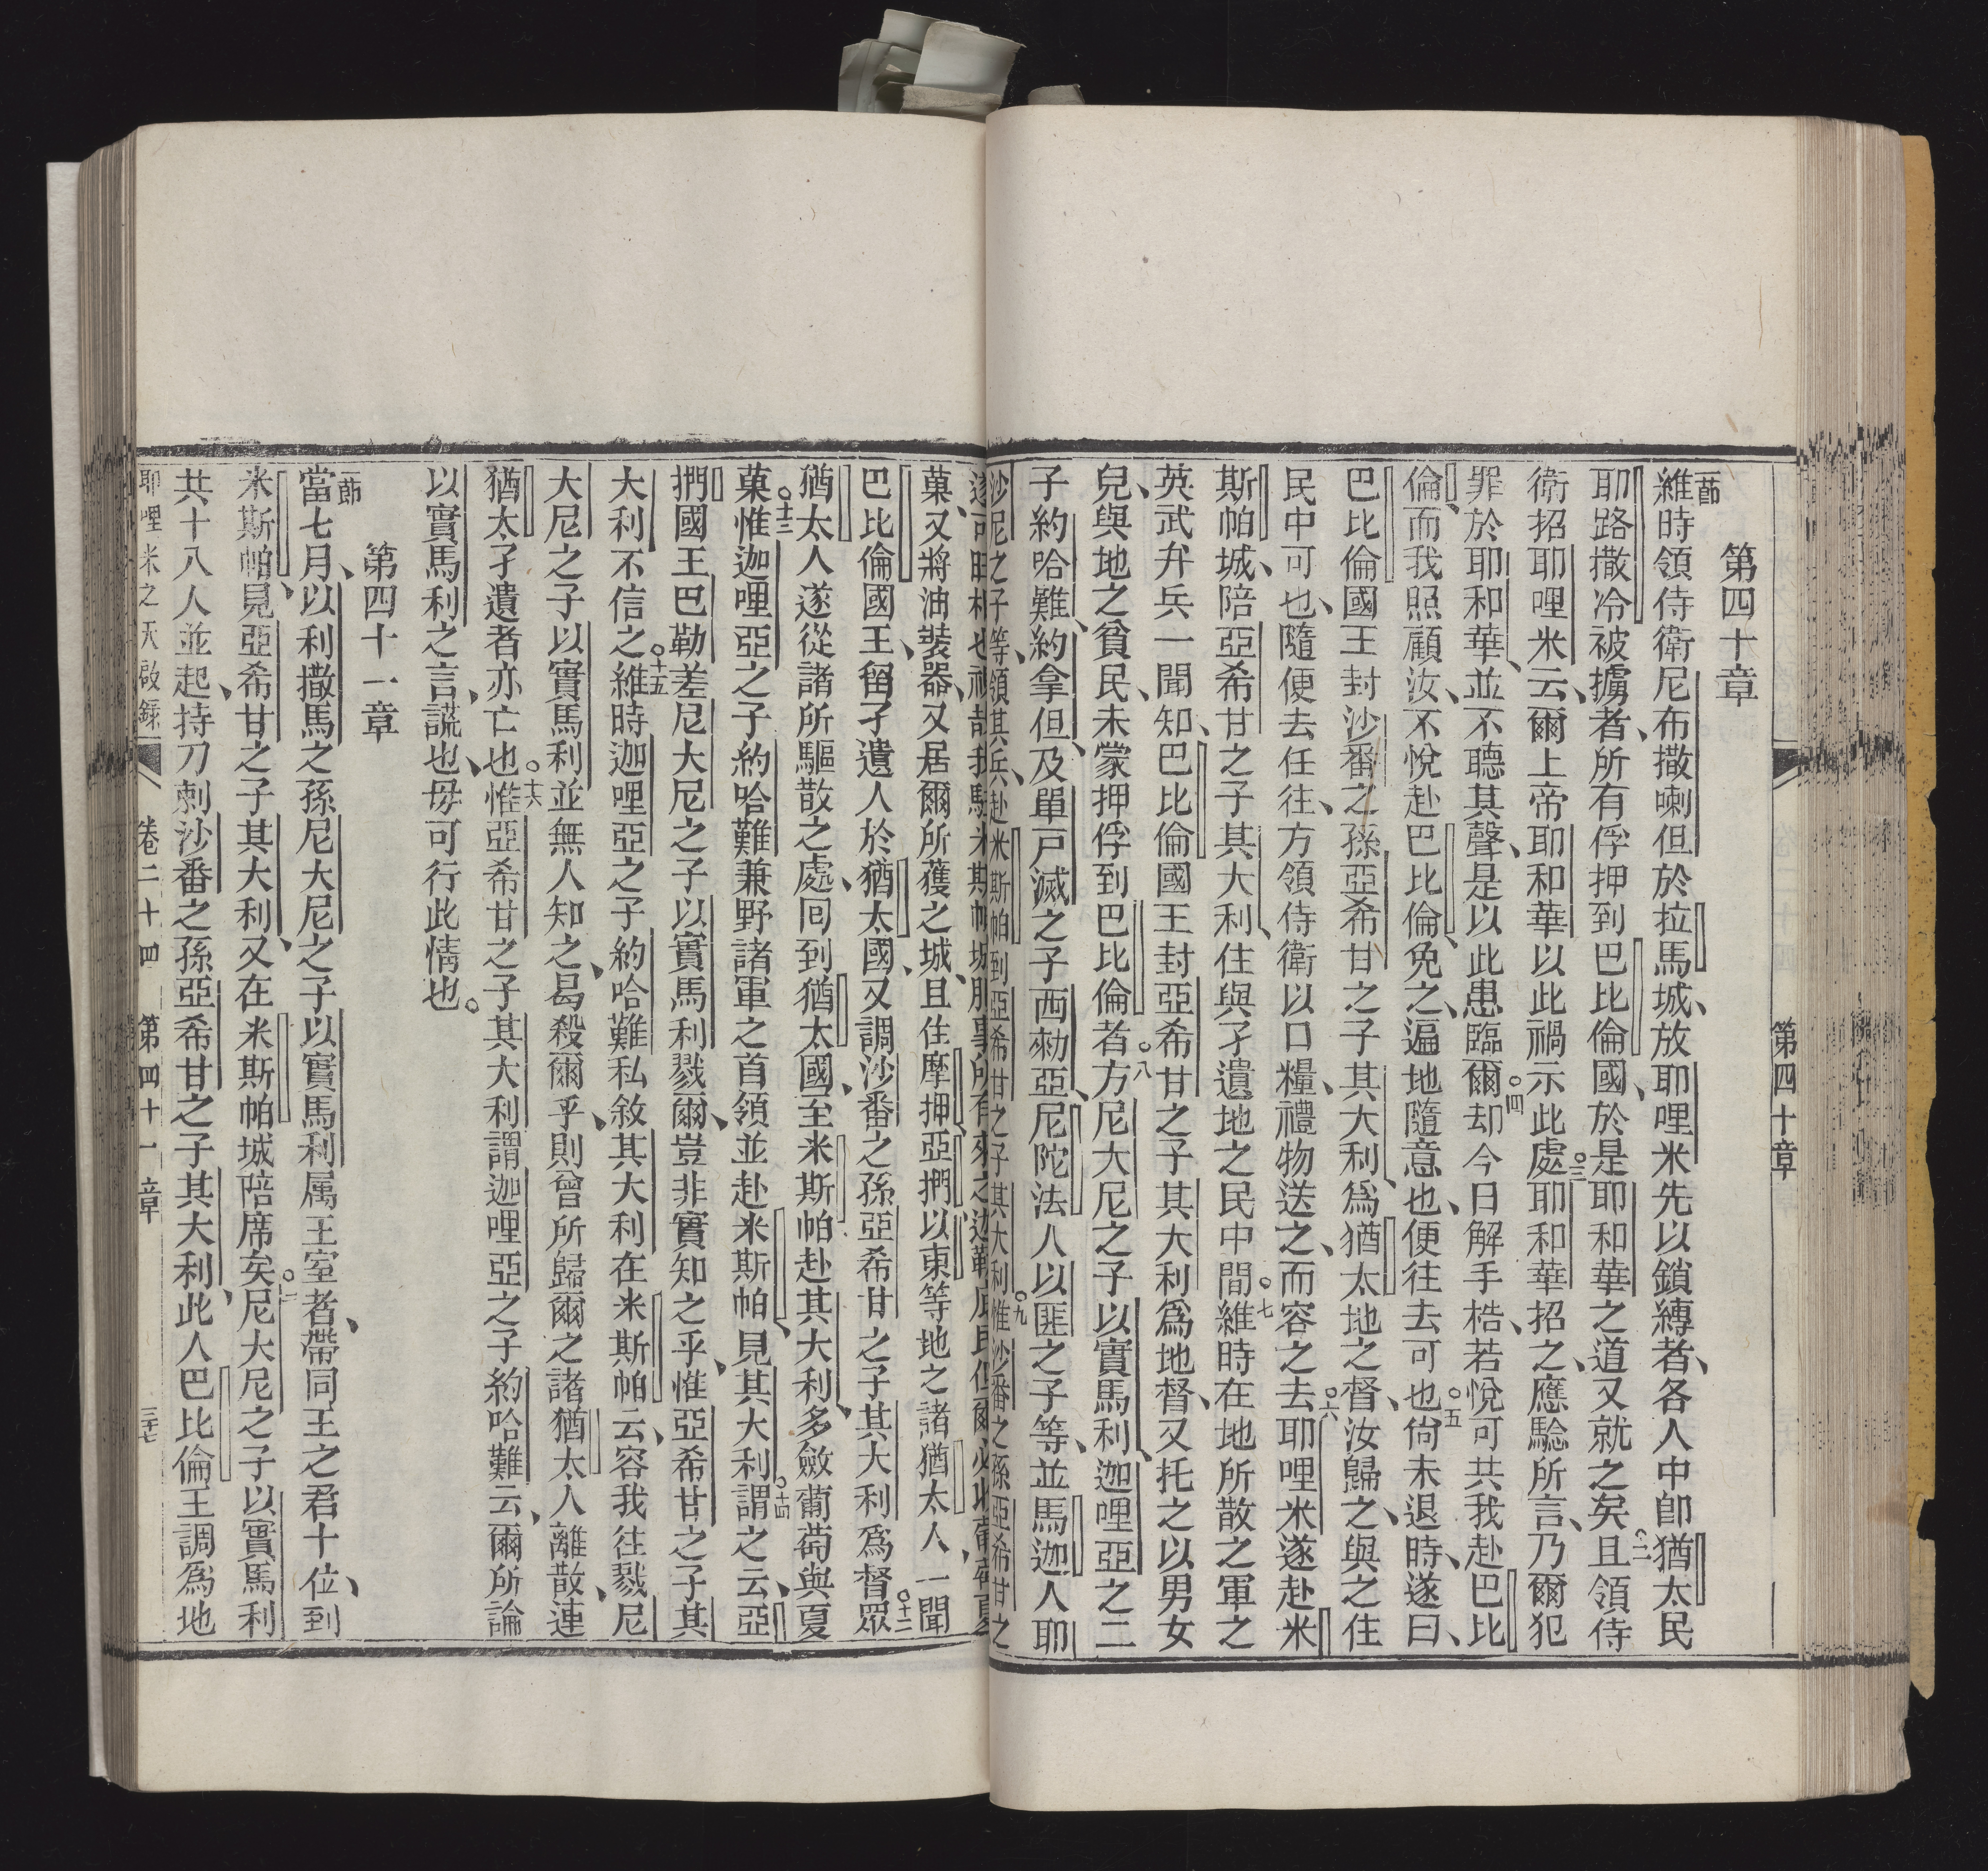 第四十章
第四十章
一節
維時領侍衛尼布撒喇但於拉馬城、放耶哩米先以鎖縳者、各人中卽猶太民
耶路撒冷被擄者、所有俘押到巴比倫國、於是耶和華之道又就之矣○二且領侍
衛招耶哩米云、爾上帝耶和華以此禍示此處○三耶和華招之、應騐所言、乃爾犯
罪於耶和華、並不聽其聲、是以此患臨爾○四却今日解手梏、若悅可共我赴巴比
倫、而我照顧汝、不悅赴巴比倫、免之、遍地隨意也、便往去可也○五尙未退時、遂曰、
巴比倫國王封沙番之孫亞希甘之子其大利、爲猶太地之督、汝歸之、與之住
民中可也、隨便去任往、方領侍衛以口糧、禮物送之、而容之去○六耶哩米遂赴米
斯帕城、陪亞希甘之子其大利、住與孑遺地之民中間○七維時在地所散之軍之
英武弁兵一聞知、巴比倫國王封亞希甘之子其大利爲地督、又托之以男女
兒、與地之貧民、未蒙押俘到巴比倫者○八方尼大尼之子以實馬利、迦哩亞之二
子約哈難、約拿但、及單戸滅之子西勑亞、尼陀法人以匪之子等、並馬迦人耶
沙尼之子等、領其兵、赴米斯帕到亞希甘之子其大利○九惟沙番之孫亞希甘之
菓、又將油裝器、又居爾所獲之城、且住摩押、亞捫、以東等地之諸猶太人、一聞○十二
巴比倫國王、留孑遺人於猶太國、又調沙番之孫亞希甘之子其大利爲督眾
猶太人遂從諸所驅散之處、囘到猶太國、至米斯帕赴其大利、多斂葡萄與夏
菓○十三惟迦哩亞之子約哈難兼野諸軍之首領並赴米斯帕、見其大利○十四謂之云、亞
捫國王巴勒差尼大尼之子以實馬利戮爾、豈非實知之乎、惟亞希甘之子其
大利不信之○十五維時迦哩亞之子約哈難私敘其大利在米斯帕云、容我往戮尼
大尼之子以實馬利並無人知之、曷殺爾乎、則曾所歸爾之諸猶太人離散、連
猶太孑遺者亦亡也○十六惟亞希甘之子其大利謂迦哩亞之子約哈難云、爾所論
以實馬利之言、謊也、毋可行此情也。
第四十一章
一節
當七月、以利撒馬之孫尼大尼之子以實馬利属王室者、帶同王之君十位、到
米斯帕、見亞希甘之子其大利、又在米斯帕城陪席矣○二尼大尼之子以實馬利
共十八人並起、持刀刺沙番之孫亞希甘之子其大利、此人巴比倫王調爲地
耶哩米之天啟錄 卷二十四 第四十一章 三十七